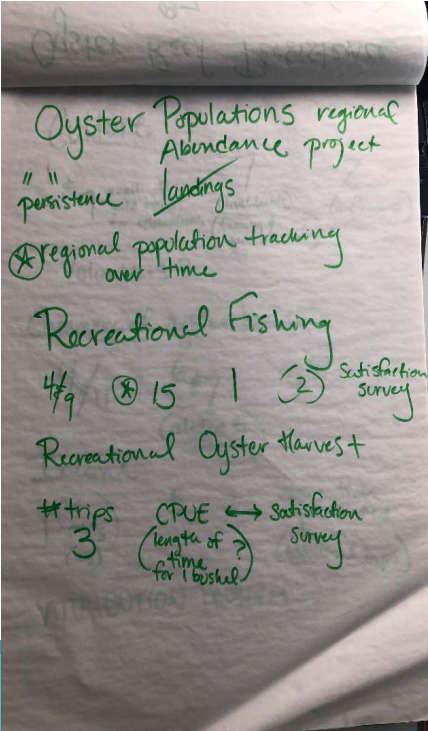 Oyster Populations regional
Abundance project
" "
persistence landings
* regional population tracking
over time
Recreational Fishing
* 15 1 (2) Satisfaction
survey
Recreational Oyster Harvest
# trips CPUE ↔ satisfaction
3 (length of ? survey
time
for 1 bushel)